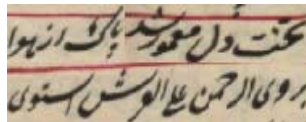 تخت دل معمور شد پاک از هوا
بروی الرحمن علی العرش استوی